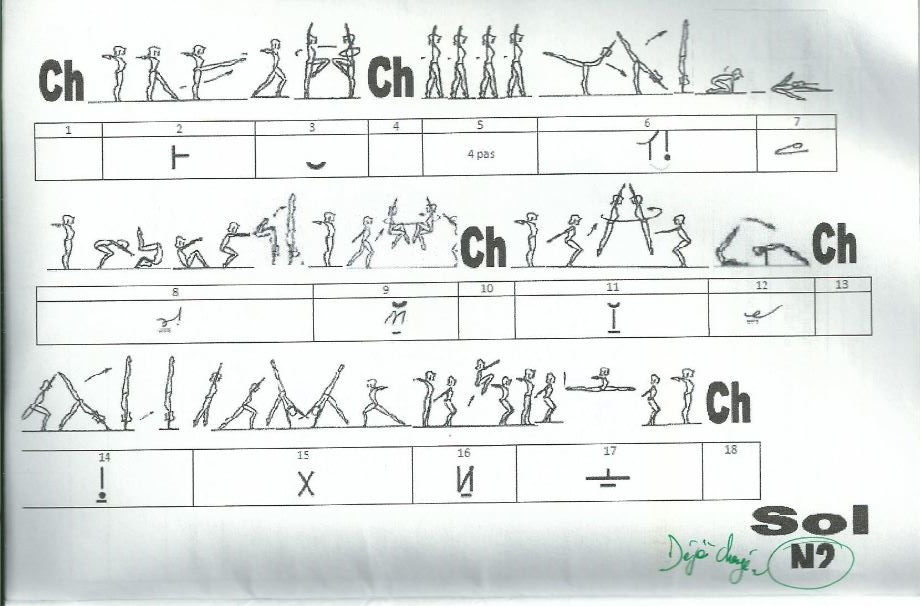 Ch Ch
1 2 3 4 5 6 7
4 pas
Ch Ch
8 9 10 11 12 13
Ch
14 15 16 17 18
X
Sol
Déjà
N2